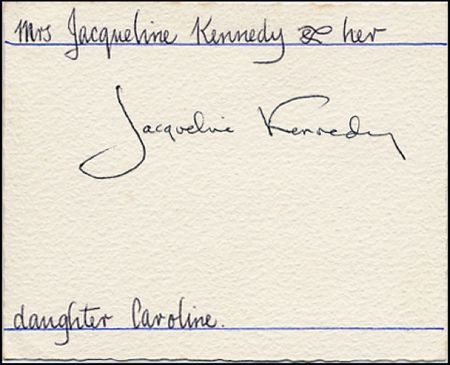 Mrs Jacqueline Kennedy & her
Jacqueline Kennedy
daughter Caroline.